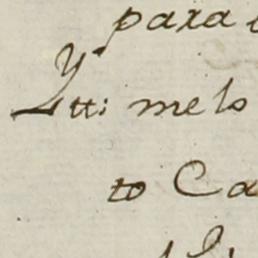 para
Ytt: melo
to Ca